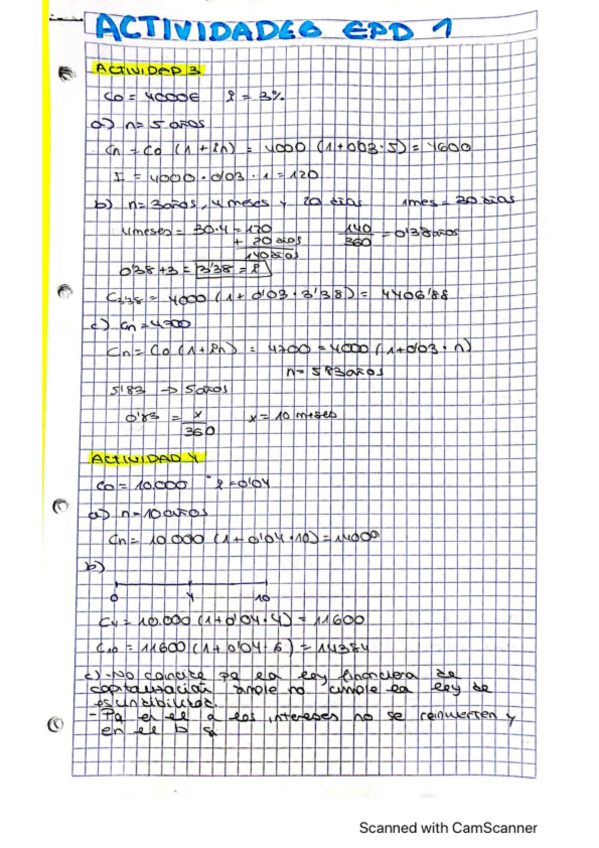 ACTIVIDADES EPD 1
ACTIVIDAD 3
Co = 4000€ i = 3%
a) n = 5 años
Cn = Co (1 + in) = 4000 (1 + 0'03 · 5) = 4600
I = 4000 · 0'03 · 1 = 120
b) n = 3 años, 4 meses y 20 días 1 mes = 30 días
4 meses = 30 · 4 = 120 140/360 = 0'38 años
+ 20 días
140 días
0'38 + 3 = 3'38 = i
C3'38 = 4000 (1 + 0'03 · 3'38) = 4406'88
c) Cn = 4700
Cn = Co (1 + in) = 4700 = 4000 (1 + 0'03 · n)
n = 5'83 años
5'83 → 5 años
0'83 = x/360 x = 10 meses
ACTIVIDAD 4
Co = 10.000 i = 0'04
a) n = 10 años
Cn = 10.000 (1 + 0'04 · 10) = 14000
b)
0 4 10
C4 = 10.000 (1 + 0'04 · 4) = 11600
C10 = 11600 (1 + 0'04 · 6) = 14384
c) - No coincide pq la ley financiera de
capitalización simple no cumple la ley de
escindibilidad.
- Pq en el a los intereses no se reinvierten y
en el b sí
Scanned with CamScanner